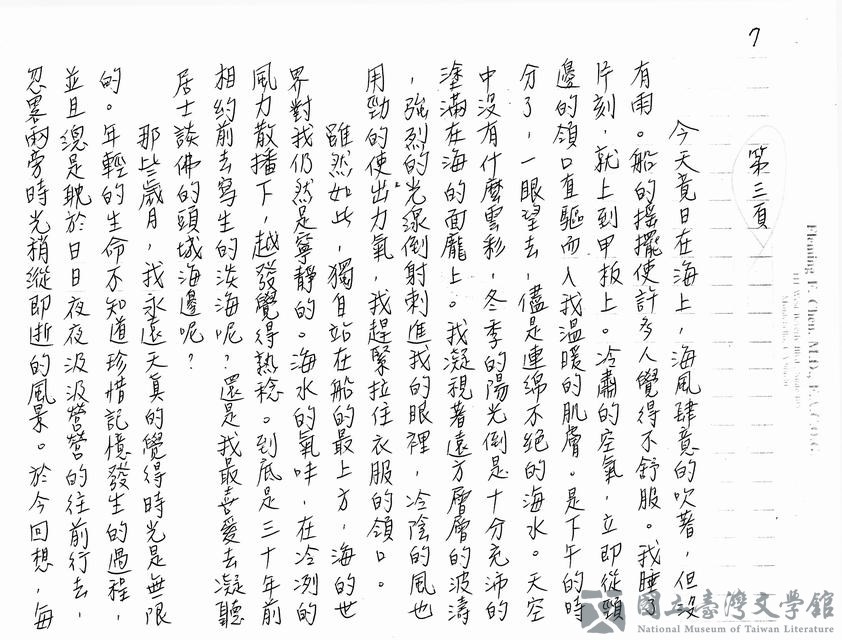 7
第三頁
Fleming F. Chen, M.D., F.A.C.O.G.
今天竟日在海上，海風肆意的吹著，但沒
有雨。船的搖擺使許多人覺得不舒服。我睡了
片刻，就上到甲板上。冷肅的空氣，立即從頸
邊的領口直驅而入我溫暖的肌膚。是下午的時
分了，一眼望去，儘是連綿不絕的海水。天空
中沒有什麼雲彩，冬季的陽光倒是十分充沛的
塗滿在海的面龐上。我凝視著遠方層層的波濤
，強烈的光線倒射刺進我的眼裡，冷陰的風也
用勁的使出力氣，我趕緊拉住衣服的領口。
雖然如此，獨自站在船的最上方，海的世
界對我仍然是寧靜的。海水的氣味，在冷冽的
風力散播下，越發覺得熟稔。到底是三十年前
相約前去寫生的淡海呢？還是我最喜愛去凝聽
居士談佛的頭城海邊呢？
那些歲月，我永遠天真的覺得時光是無限
的。年輕的生命不知道珍惜記憶發生的過程，
並且總是耽於日日夜夜汲汲營營的往前行去，
忽畧兩旁時光稍縱即逝的風景。於今回想，每
國立臺灣文學館
National Museum of Taiwan Literature